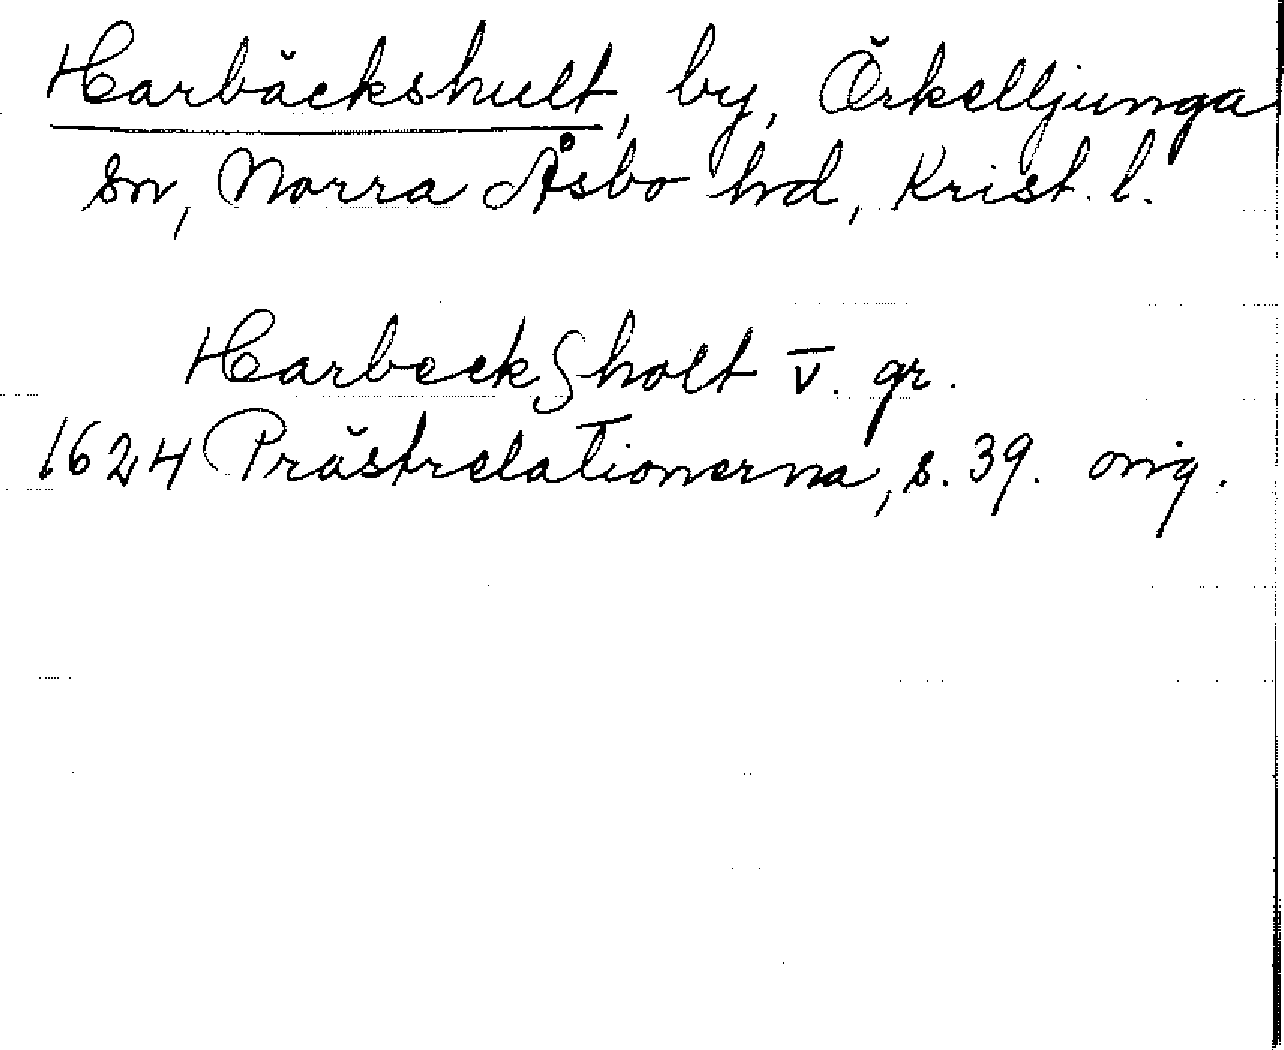 Harbäckshult, by, Örkelljunga
sn, Norra Åsbo hd, Krist. l.
Harbeckſholt V. gr.
1624 Prästrelationerna, s. 39. orig.